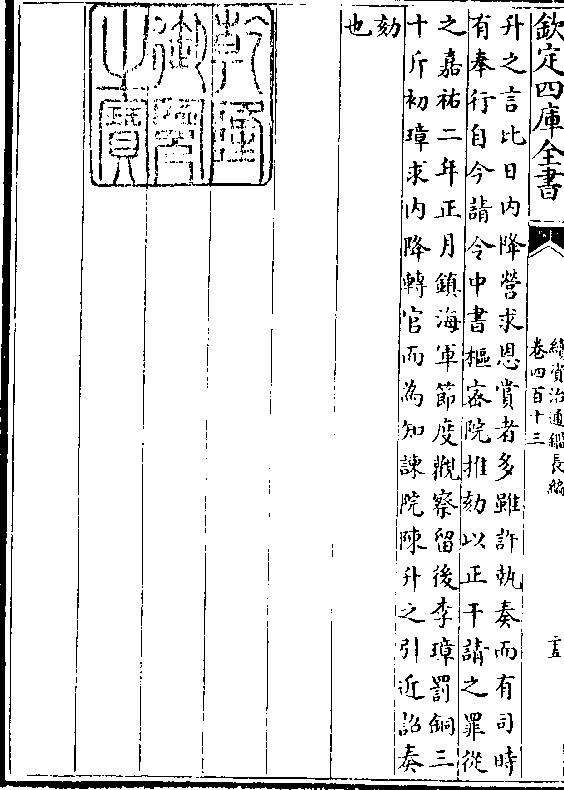 欽定四庫全書
續資治通鑑長編
卷四百十三
升之言比日内降營求恩賞者多雖許執奏而有司時
有奉行自今請令中書樞宻院推劾以正干請之罪從
之嘉祐二年正月鎮海軍節度觀察留後李璋罰銅三
十斤初璋求内降轉官而為知諫院陳升之引近詔奏
劾
也
乾隆
御覽
之寶